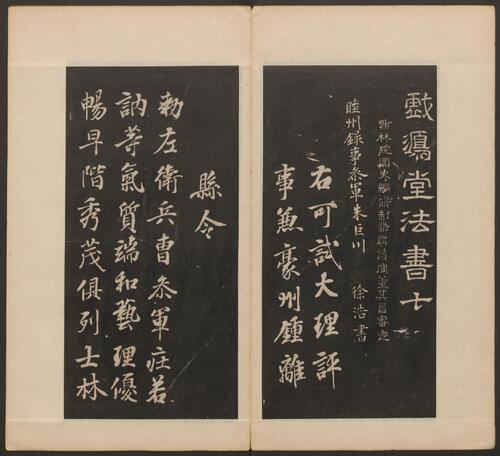 戲鴻堂法書
翰林院國史編脩制誥講讀官董其昌審定
徐浩書
睦州錄事參軍朱巨川
右可試大理評
事兼豪州鍾離
縣令
勅左衛兵曹參軍莊若
訥等氣質端和藝理優
暢早階秀茂俱列士林